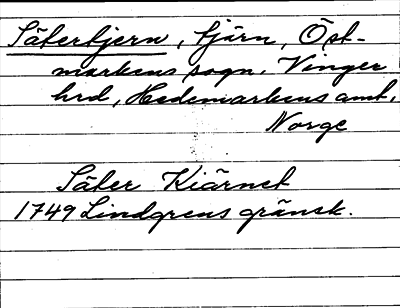 Säterbjern, tjärn, Öst-
markens sogn. Vinger
hrd, Hedemarkens amt,
Norge
Säter Kiärnet
1749 Lindgrens gränsk.